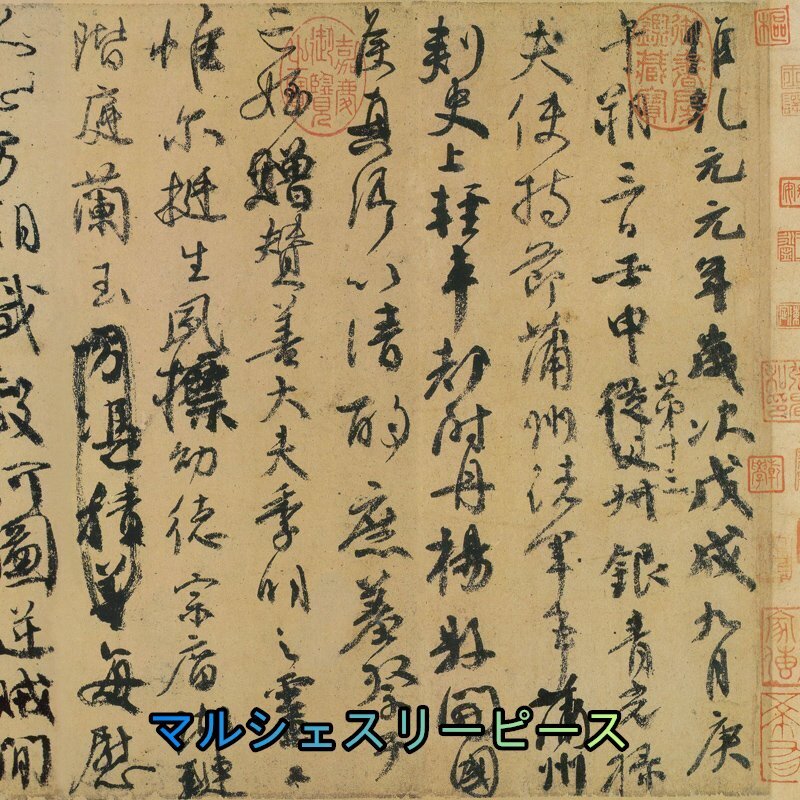 維乾元元年歲次戊戌九月庚
午朔三日壬申
第十三
銀青光祿
夫使持節蒲州諸軍事蒲州
刺史上輕車都尉丹楊縣開國
侯真卿以清酌庶羞祭于
亡姪贈贊善大夫季明之靈
惟爾挺生夙標幼德宗廟瑚璉
階庭蘭玉方憑積善每慰
人心方期戩穀何圖逆賊間
嘉慶御覽之寶
マルシェスリーピース